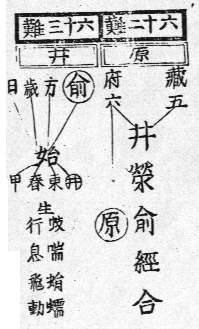 六十二難
原
藏五
府六
井滎俞經合
原
六十三難
井
俞
方
歲
日
始
井
東
春
甲
生
蚑喘蜎蠕
行息飛動